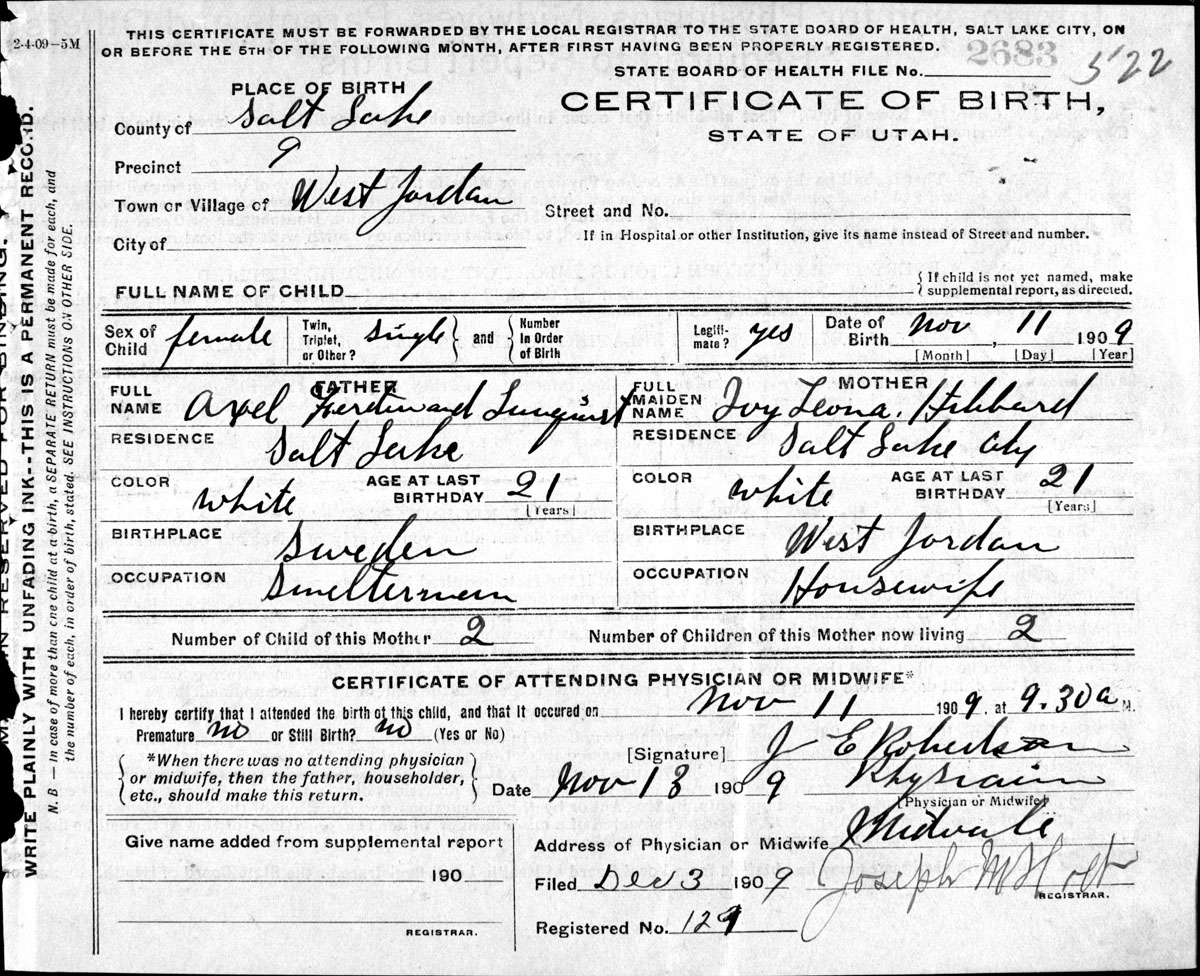 2-4-09-5M
THIS CERTIFICATE MUST BE FORWARDED BY THE LOCAL REGISTRAR TO THE STATE BOARD OF HEALTH, SALT LAKE CITY, ON
OR BEFORE THE 5TH OF THE FOLLOWING MONTH, AFTER FIRST HAVING BEEN PROPERLY REGISTERED.
2683
522
STATE BOARD OF HEALTH FILE No.
PLACE OF BIRTH
CERTIFICATE OF BIRTH,
STATE OF UTAH.
County of Salt Lake
Precinct 9
Town or Village of West Jordan
Street and No.
City of
If in Hospital or other Institution, give its name instead of Street and number.
FULL NAME OF CHILD
{ If child is not yet named, make
supplemental report, as directed.
Sex of Child female Twin, Triplet, or Other? single } and { Number in Order of Birth Legiti-mate? yes Date of Birth Nov, 11 1909
[Month] [Day] [Year]
FATHER
FULL NAME Axel Ferdinand Lunquist
MOTHER
FULL MAIDEN NAME Ivy Leona. Hibbard
RESIDENCE Salt Lake
RESIDENCE Salt Lake City
COLOR white AGE AT LAST BIRTHDAY 21 [Years]
COLOR white AGE AT LAST BIRTHDAY 21 [Years]
BIRTHPLACE Sweden
BIRTHPLACE West Jordan
OCCUPATION Smelterman
OCCUPATION Housewife
Number of Child of this Mother 2 Number of Children of this Mother now living 2
CERTIFICATE OF ATTENDING PHYSICIAN OR MIDWIFE*
I hereby certify that I attended the birth of this child, and that it occured on Nov 11 1909. at 9.30 a M.
Premature no or Still Birth? no (Yes or No)
[Signature] J E Robertson
{ *When there was no attending physician
or midwife, then the father, householder,
etc., should make this return. }
Date Nov 13 1909 Physician
[Physician or Midwife]
Give name added from supplemental report
Address of Physician or Midwife Midvale
190
Filed Dec 3 1909 Joseph M Holt
REGISTRAR.
Registered No. 129
REGISTRAR.
WRITE PLAINLY WITH UNFADING INK--THIS IS A PERMANENT RECORD.
RESERVED FOR BINDING.
N. B — In case of more than one child at a birth, a SEPARATE RETURN must be made for each, and
the number of each, in order of birth, stated. SEE INSTRUCTIONS ON OTHER SIDE.